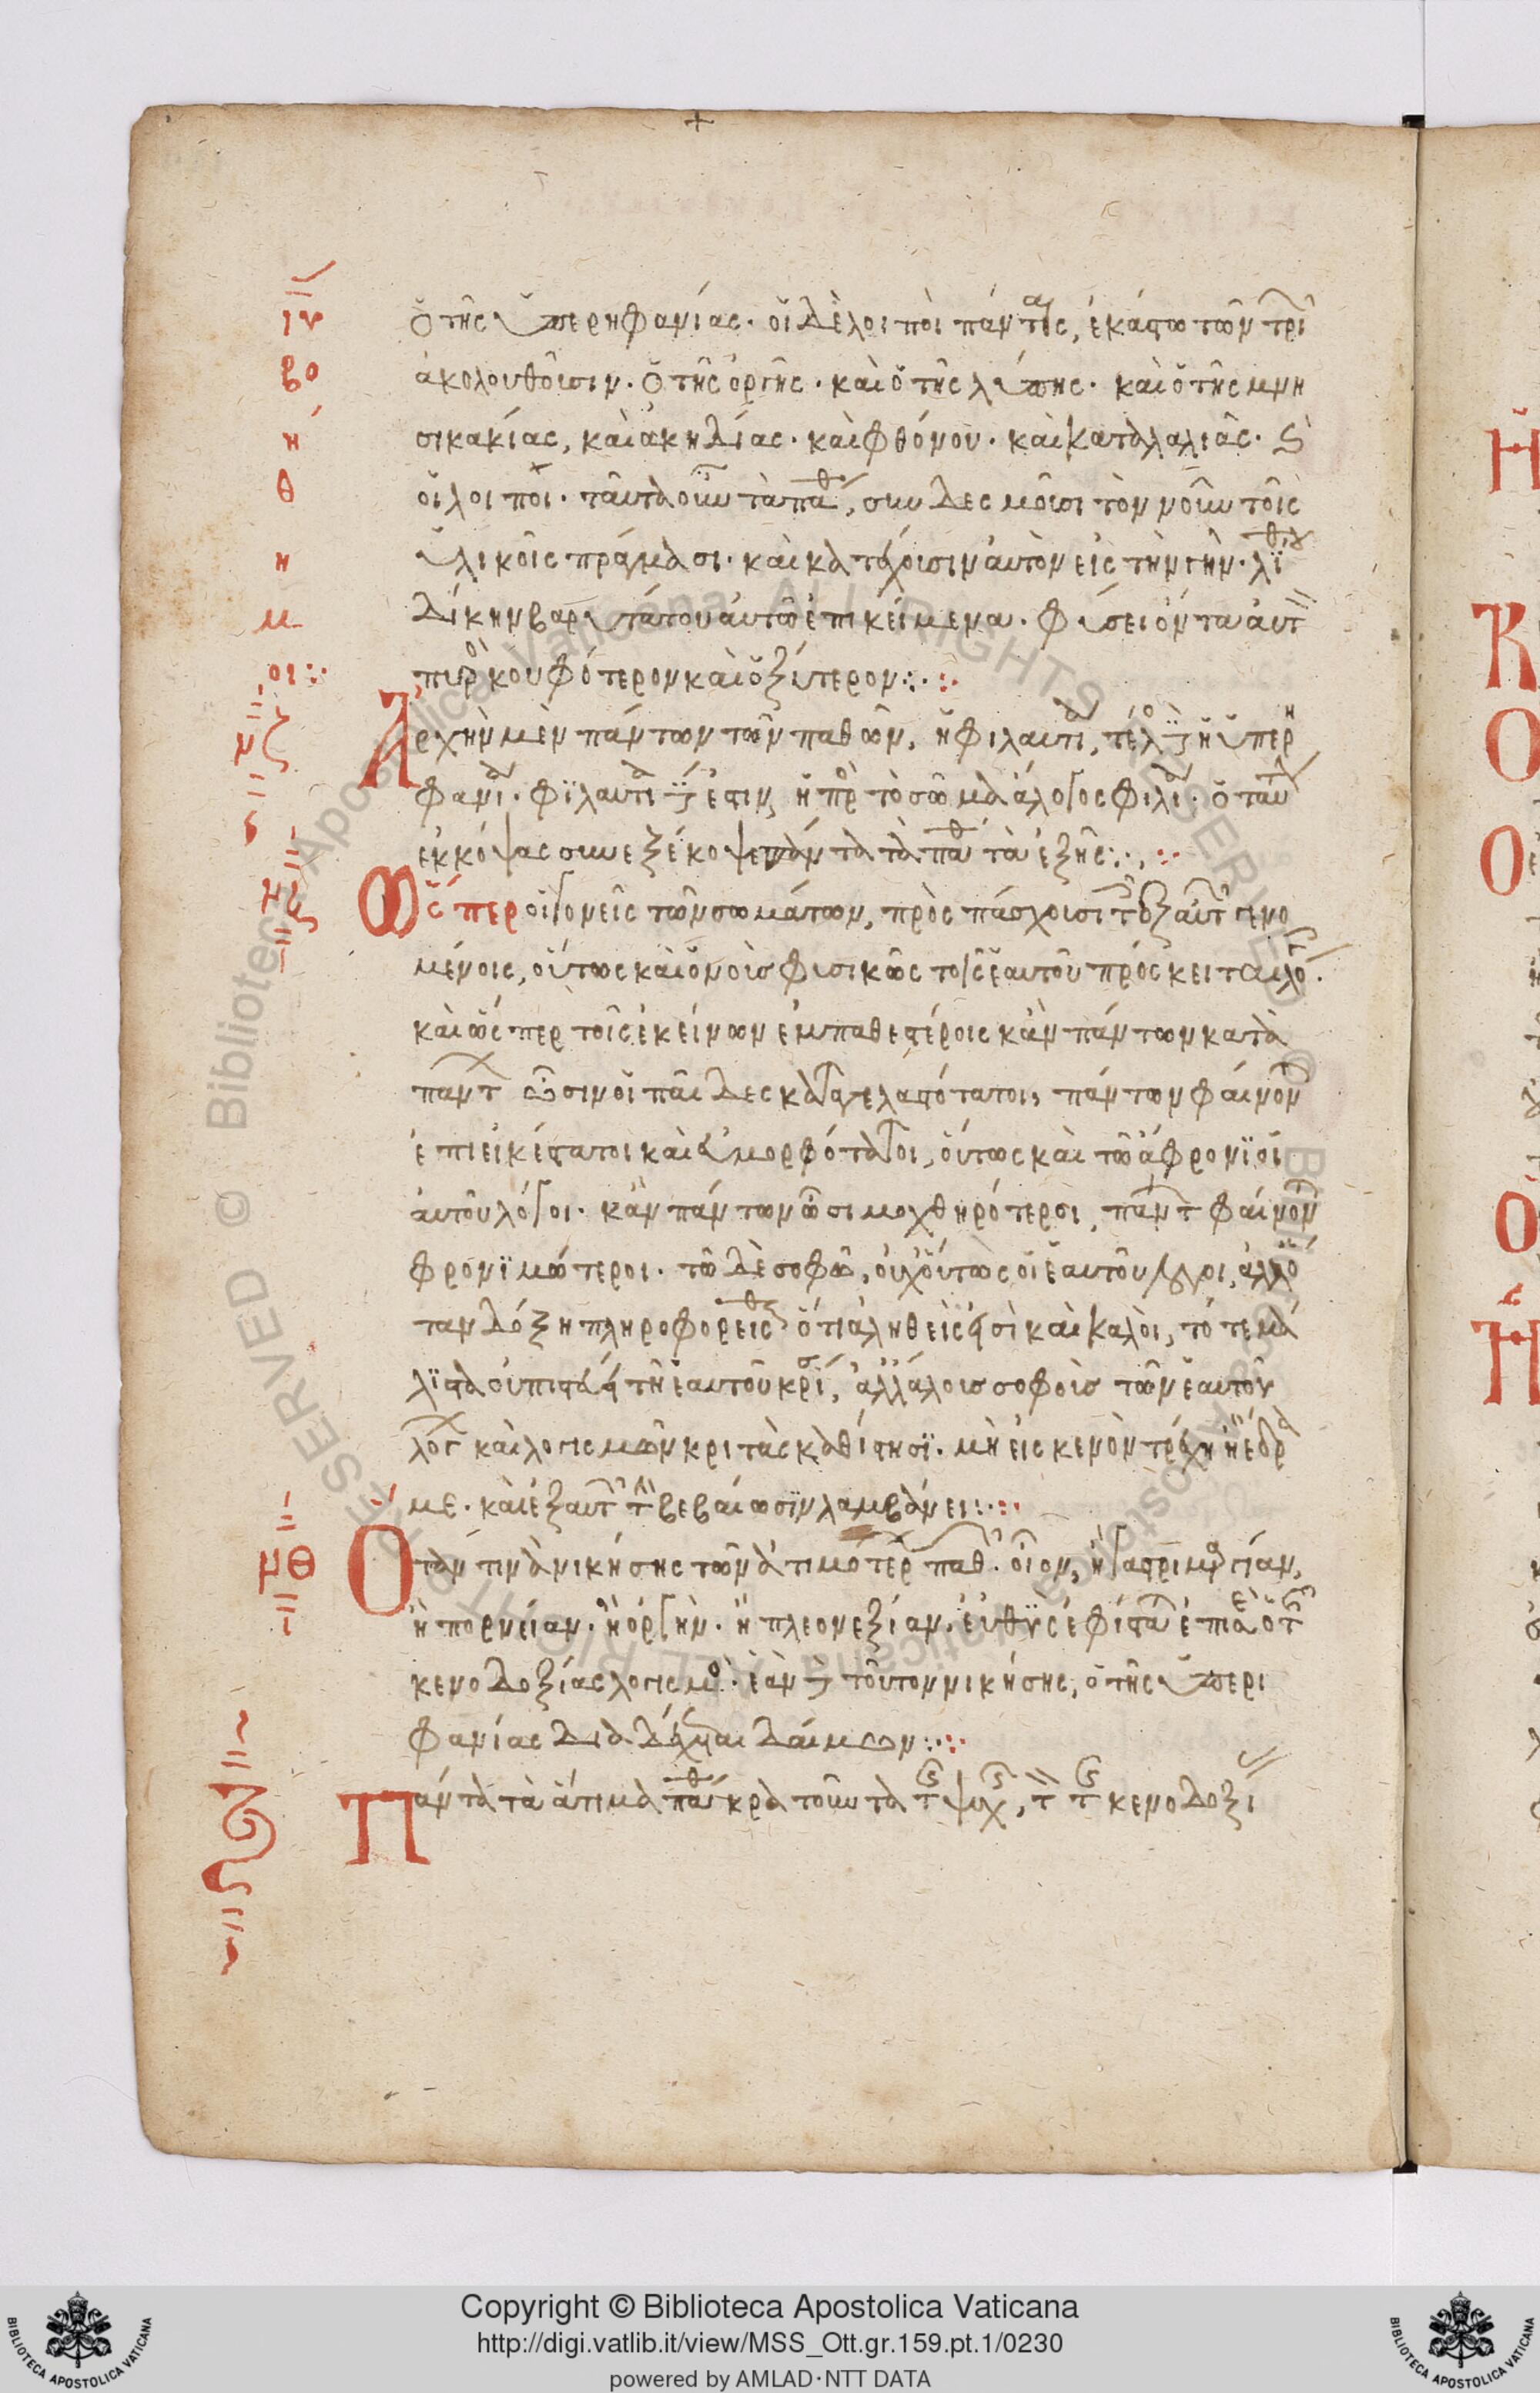 ὁ τῆς ὑπερηφανίας· οἱ δὲ λοιποὶ πάντες, ἑκάστω τῶν τρι
ἀκολουθοῦσιν· ὁ τῆς ὀργῆς· καὶ ὁ τῆς λύπης· καὶ ὁ τῆς μνη
σικακίας, καὶ ἀκηδίας· καὶ φθόνου· καὶ καταλαλιᾶς· ϛ
οἱ λοιποί· ταῦτα οὖν τὰ παθ, συνδεσμοῦσι τὸν νοῦν τοῖς
ὑλικοῖς πράγμασι· καὶ κατέχουσιν αὐτὸν εἰς τὴν γῆν· λίθου
δίκην βαρυτάτου αὐτῶ ἐπικείμενα· φύσει ὄντα αὐτ
πυρὸ κουφότερον καὶ ὀξύτερον:·
Ἀρχὴν μὲν πάντων τῶν παθῶν, ἡ φιλαυτία, τέλο δὲ ἡ ὑπερη
φανία· φϊλαυτία δέ ἐστιν ἡ πρὸ τὸ σῶμα ἄλογος φιλία· ὁ ταύτ
ἐκκόψας συνεξέκοψε πάντα τὰ παθ τὰ ἑξῆς:·
Ὥσπερ οἱ γονεῖς τῶν σωμάτων, προσπάσχουσι τοῖ ἐξ αὐτῶ γενο
μένοις, οὕτως καὶ ὁ νοῦς φυσικῶς τοῖς ἑαυτοῦ πρόσκειται λόγοι.
καὶ ὥσπερ τοῖς ἐκείνων ἐμπαθεστέροις κἂν πάντων κατὰ
παντ ὦσιν οἱ παῖδες καταγελαστότατοι, πάντων φαίνον
ἐπιεικέστατοι καὶ εὐμορφότατοι, οὕτως καὶ τῶ ἄφρονϊ οἱ
αὐτοῦ λόγοι· κἂν πάντων ὦσι μοχθηρότεροι, παντ φαίνον
φρονϊμώτεροι· τῶ δὲ σοφῶ, οὐχ οὕτως οἱ ἑαυτοῦ λόγοι, ἀλλ' ὅ
ταν δόξη πληροφορεῖσθ ὅτι ἀληθεῖς εἰσὶ καὶ καλοὶ, τότε μά
λϊστα οὐ πιστεύει τῆ ἑαυτοῦ κρίσ, ἀλλ' ἄλλους σοφοὺς τῶν ἑαυτοῦ
λογ καὶ λογισμῶν κριτὰς καθίστησϊ· μὴ εἰς κενὸν τρέχη ἢ ἔδρα
με· καὶ ἐξ αὐτῶ τὴν βεβαίωσϊν λαμβάνει:·
Ὅταν τινὰ νικήσης τῶν ἀτιμοτέρ παθ· οἷον, ἢ γαστριμαργίαν,
ἢ πορνείαν· ἢ ὀργὴν· ἢ πλεονεξίαν, εὐθὺς ἐφίσταται ἐπὶ σὲ ὁ τ
κενοδοξίας λογισμὸ· ἐὰν δὲ τοῦτον νικήσης, ὁ τῆς ὑπερι
φανίας διαδέχεται δαίμων:·
Πάντα τὰ ἄτιμα παθ κρατοῦντα τ ψυχ, τ τ κενοδοξί
νζ
νη
νθ
Copyright © Biblioteca Apostolica Vaticana
http://digi.vatlib.it/view/MSS_Ott.gr.159.pt.1/0230
powered by AMLAD·NTT DATA